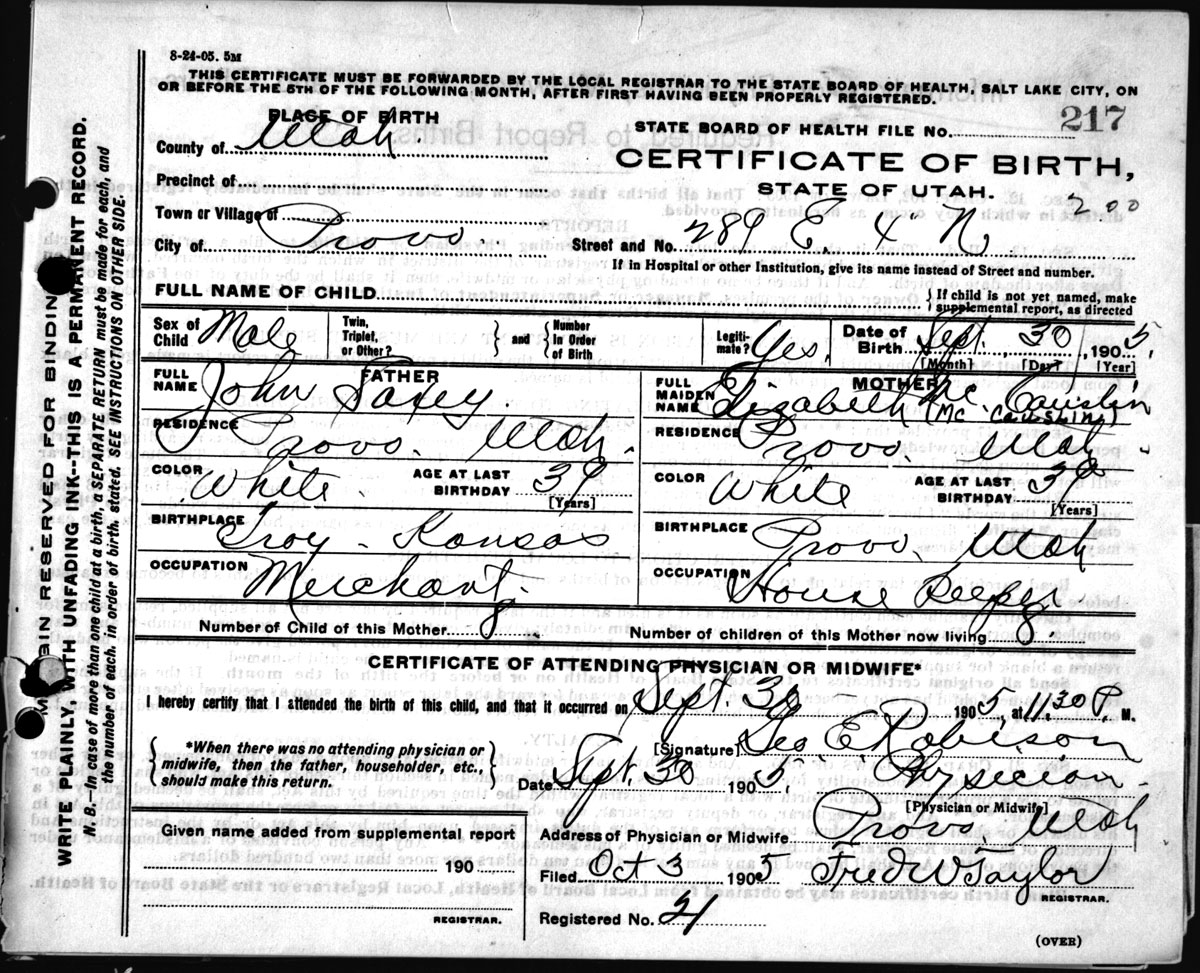 8-24-05. 5M
THIS CERTIFICATE MUST BE FORWARDED BY THE LOCAL REGISTRAR TO THE STATE BOARD OF HEALTH, SALT LAKE CITY, ON
OR BEFORE THE 5TH OF THE FOLLOWING MONTH, AFTER FIRST HAVING BEEN PROPERLY REGISTERED.
PLACE OF BIRTH
STATE BOARD OF HEALTH FILE NO. 217
County of Utah
CERTIFICATE OF BIRTH,
Precinct of
STATE OF UTAH.
200
Town or Village of
City of Provo.
Street and No. 289 E. 4" N
If in Hospital or other Institution, give its name instead of Street and number.
FULL NAME OF CHILD
{If child is not yet named, make supplemental report, as directed
Sex of Child Male
Twin, Triplet, or Other?
} and {
Number In Order of Birth
Legiti-mate? Yes.
Date of Birth Sept. 30, 1905.
[Month] [Day] [Year]
FATHER
FULL NAME John Saxey.
MOTHER
FULL MAIDEN NAME Elizabeth Mc. Causlin
(Mc Caushin)
RESIDENCE Provo. Utah.
RESIDENCE Provo. Utah.
COLOR White.
AGE AT LAST BIRTHDAY 39 [Years]
COLOR White
AGE AT LAST BIRTHDAY 39 [Years]
BIRTHPLACE Troy - Kansas
BIRTHPLACE Provo. Utah
OCCUPATION Merchant.
OCCUPATION House Keeper.
Number of Child of this Mother
Number of children of this Mother now living
CERTIFICATE OF ATTENDING PHYSICIAN OR MIDWIFE*
I hereby certify that I attended the birth of this child, and that it occurred on Sept. 30 - 1905, at 11.30 P. M.
{*When there was no attending physician or midwife, then the father, householder, etc. should make this return.}
[Signature] Geo E. Robison
Date Sept. 30 1905. Physician.
[Physician or Midwife]
Given name added from supplemental report
190
REGISTRAR.
Address of Physician or Midwife Provo Utah
Filed Oct 3 1905 Fred W Taylor
REGISTRAR.
Registered No. 21
(OVER)
MARGIN RESERVED FOR BINDING
WRITE PLAINLY, WITH UNFADING INK--THIS IS A PERMANENT RECORD.
N. B.--In case of more than one child at a birth, a SEPARATE RETURN must be made for each, and
the number of each, in order of birth, stated. SEE INSTRUCTIONS ON OTHER SIDE.